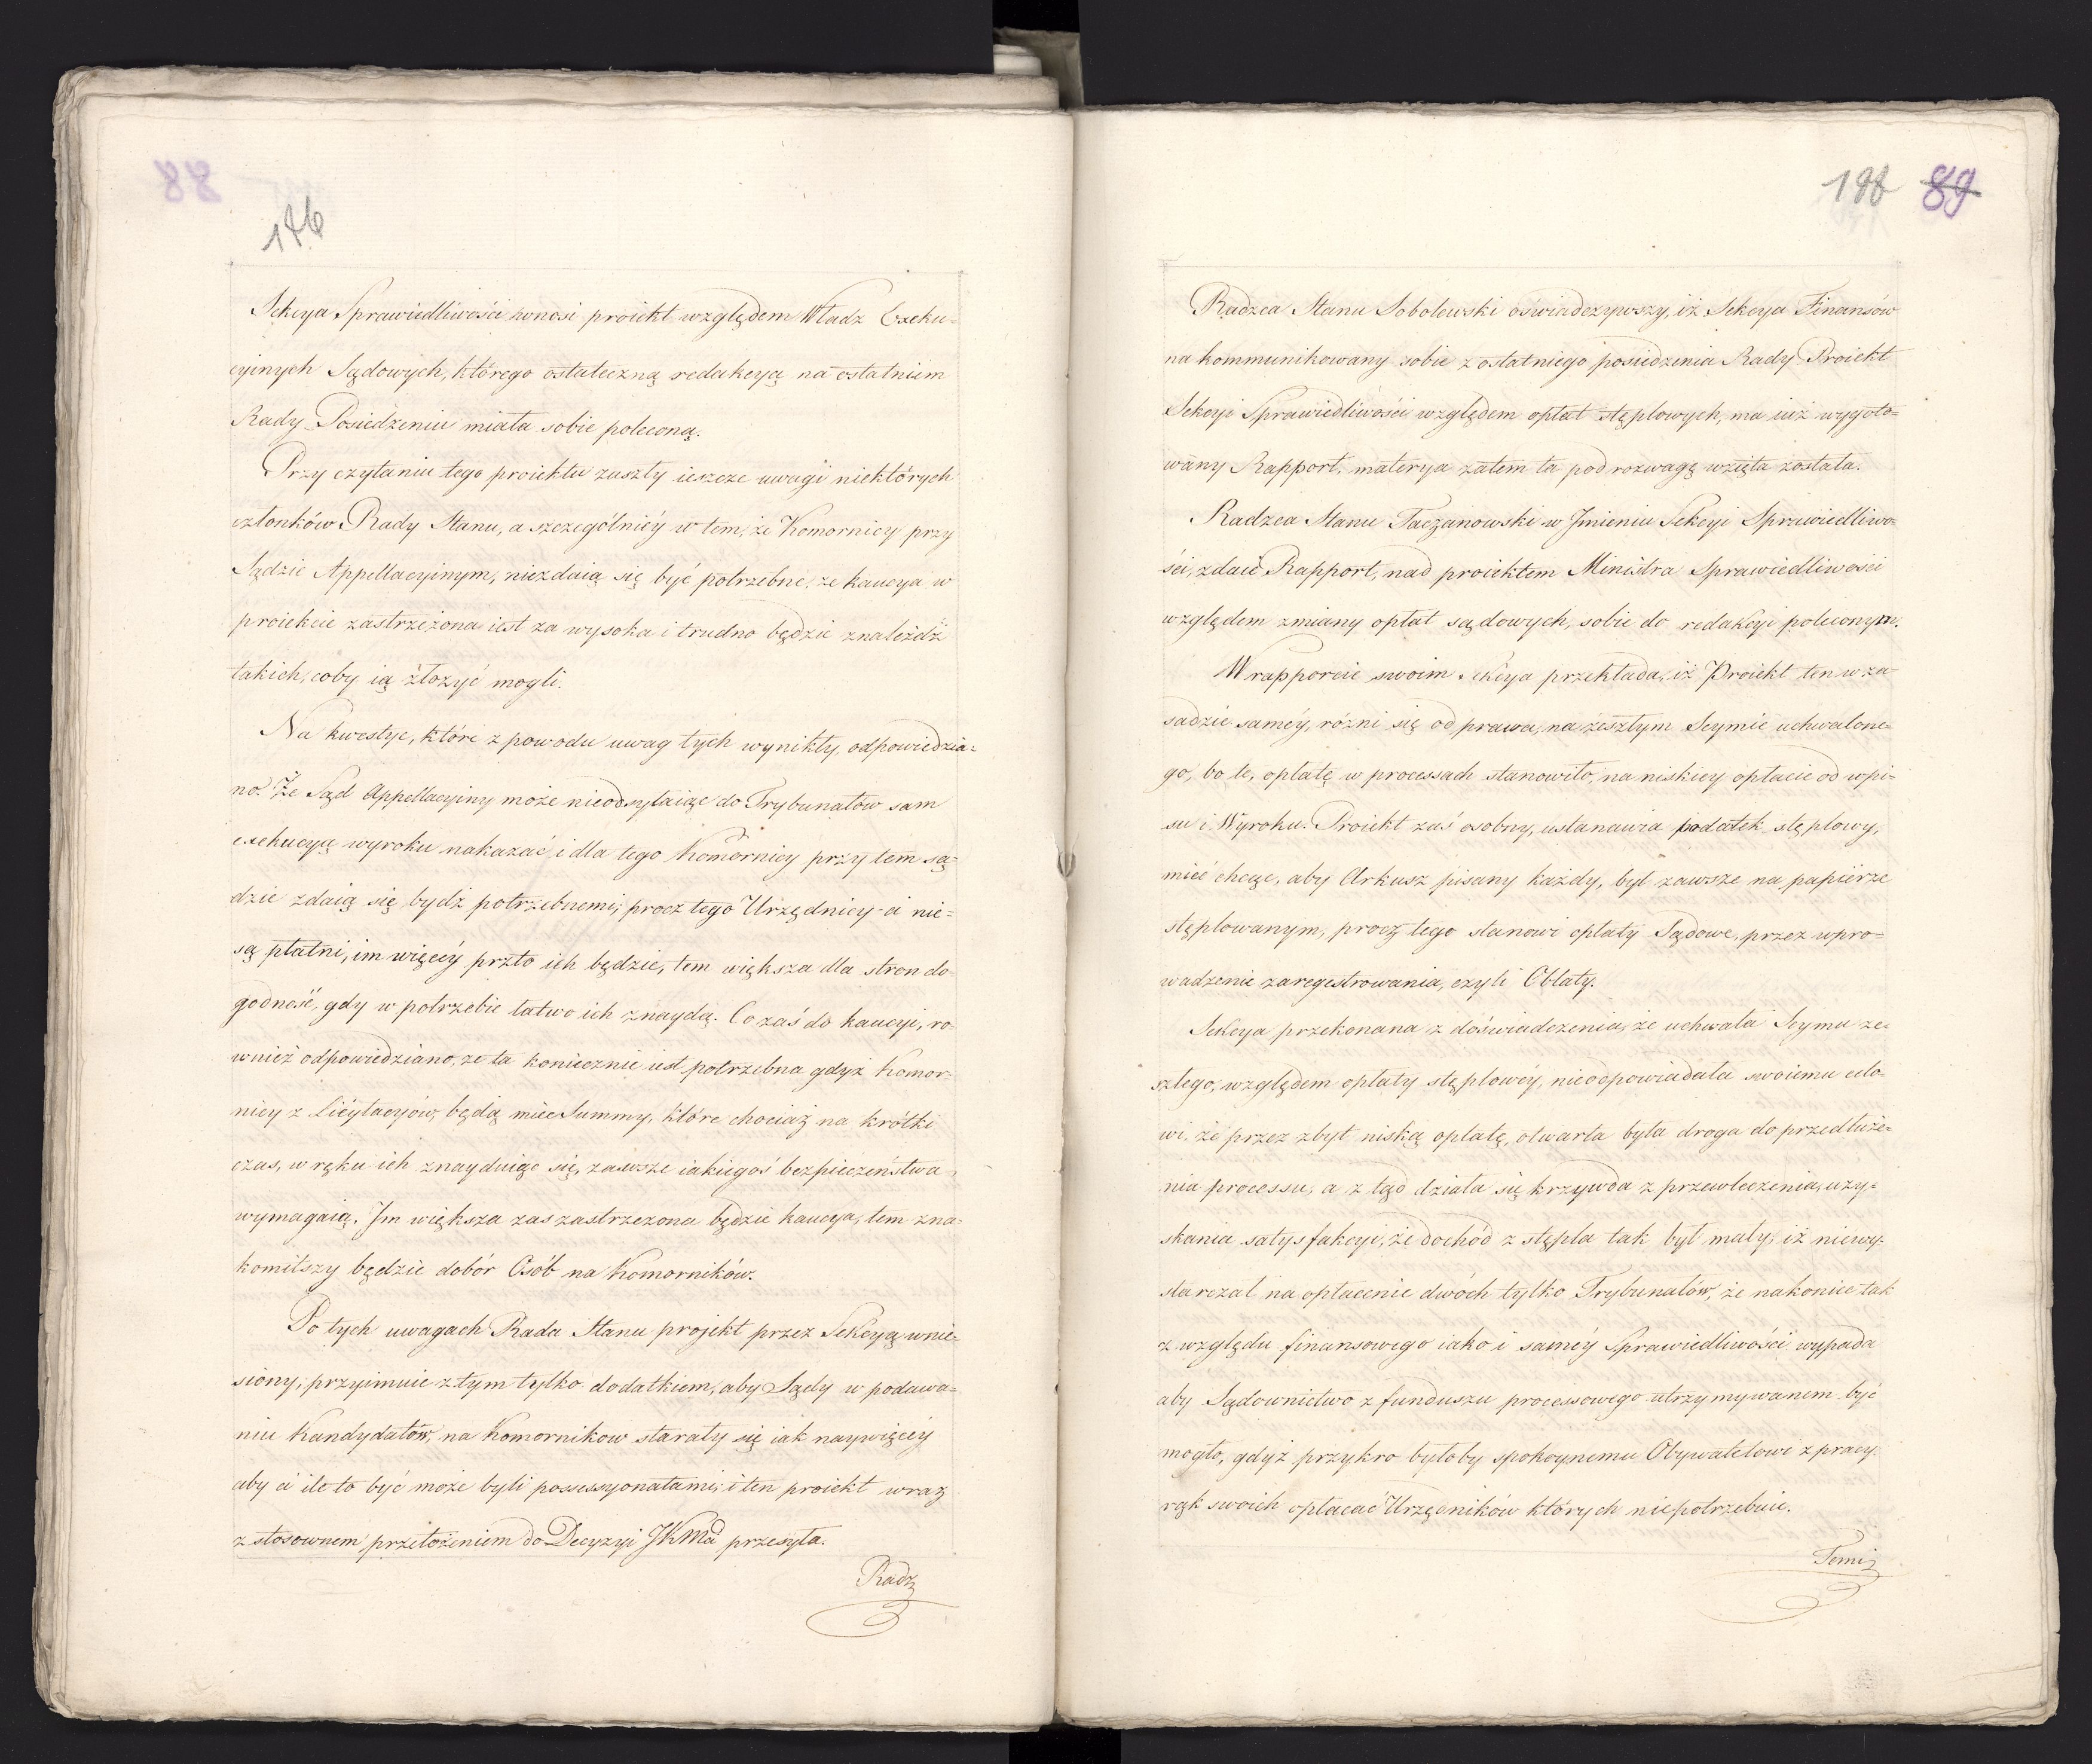 176
Sekcya Sprawiedliwości wnosi proiekt względem Władz Exeku=
cyinych Sądowych, którego ostateczną redakcyą na ostatniem
Rady Posiedzeniu miała sobie poleconą.
Przy czytaniu tego proiektu zaszły ieszcze uwagi niektórych
członków Rady Stanu, a szczególniéy w tem, że Komornicy przy
Sądzie Appellacyinym, niezdaią się być potrzebne, że kaucya w
proiekcie zastrzeżona iest za wysoka i trudno będzie znaleźdź
takich, coby ią złożyć mogli.
Na kwestye, które z powodu uwag tych wynikły, odpowiedzia=
no: Że Sąd Appellacyiny może nieodsyłaiąc do Trybunałów sam
exekucyą wyroku nakazać i dla tego Komornicy przy tem są=
dzie zdaią się bydź potrzebnemi; procz tego Urzędnicy ci nie=
są płatni, im więcéy przto ich będzie, tem większa dla stron do=
godność, gdy w potrzebie łatwo ich znaydą. Co zaś do kaucyi, ro=
wnież odpowiedziano, że ta koniecznie iest potrzebna gdyż Komor=
nicy z Licytacyów, będą mieć Summy, które chociaż na krótki
czas, w ręku ich znayduiąc się, zawsze iakiegoś bezpieczeństwa
wymagaią. Im większa zas zastrzeżona będzie kaucya, tem zna=
komitszy będzie dobór Osób na Komorników.
Po tych uwagach Rada Stanu projekt przez Sekcyą wnie=
siony, przyimuie z tym tylko dodatkiem, aby Sądy w podawa=
niu Kandydatów, na Komornikow starały się iak naywięcéy
aby ci ile to być może byli possessyonatami; i ten proiekt wraz
z stosownem przełożeniem do Decyzyi JKMci przesyła.
Radz
89
Radzca Stanu Sobolewski oświadczywszy, iż Sekcya Finansów
na kommunikowany sobie z ostatniego posiedzenia Rady Proiekt
Sekcyi Sprawiedliwości względem opłat stęplowych, ma iuż wygoto=
wany Rapport, materya zatem ta pod rozwagę wzięta została.
Radzca Stanu Taczanowski w Jmieniu Sekcyi Sprawiedliwo=
ści, zdaie Rapport, nad proiektem Ministra Sprawiedliwości
względem zmiany opłat sądowych, sobie do redakcyi poleconym.
W rapporcie swoim Sekcya przekłada, iż Proiekt ten w za=
sadzie saméy, rózni się od prawa, na zeszłym Seymie uchwalone=
go, bo te, opłatę w processach stanowiło, na niskiey opłacie od wpi=
su i Wyroku. Proiekt zaś osobny, ustanawia podatek stęplowy,
mieć chcąc, aby Arkusz pisany każdy, był zawsze na papiérze
stęplowanym, procz tego stanowi opłaty Sądowe, przez wpro=
wadzenie zaregestrowania, czyli Oblaty.
Sekcya przekonana z doświadczenia, że uchwała Seymu ze=
szłego, względem opłaty stęplowéy, nieodpowiadała swoiemu celo=
wi, że przez zbyt niską opłatę, otwarta była droga do przedłuże=
nia processu, a z tąd działa się krzywda z przewleczenia, uzy=
skania satysfakcyi, że dochód z stępla tak był mały, iż niewy=
starczał na opłacenie dwóch tylko Trybunałów, że nakoniec tak
z względu finansowego iako i saméy Sprawiedliwości wypada
aby Sądownictwo z funduszu processowego utrzymywanem być
mogło, gdyż przykro byłoby spokoynemu Obywatelowi z pracy
rąk swoich opłacać Urzędników których niepotrzebuie.
Temi